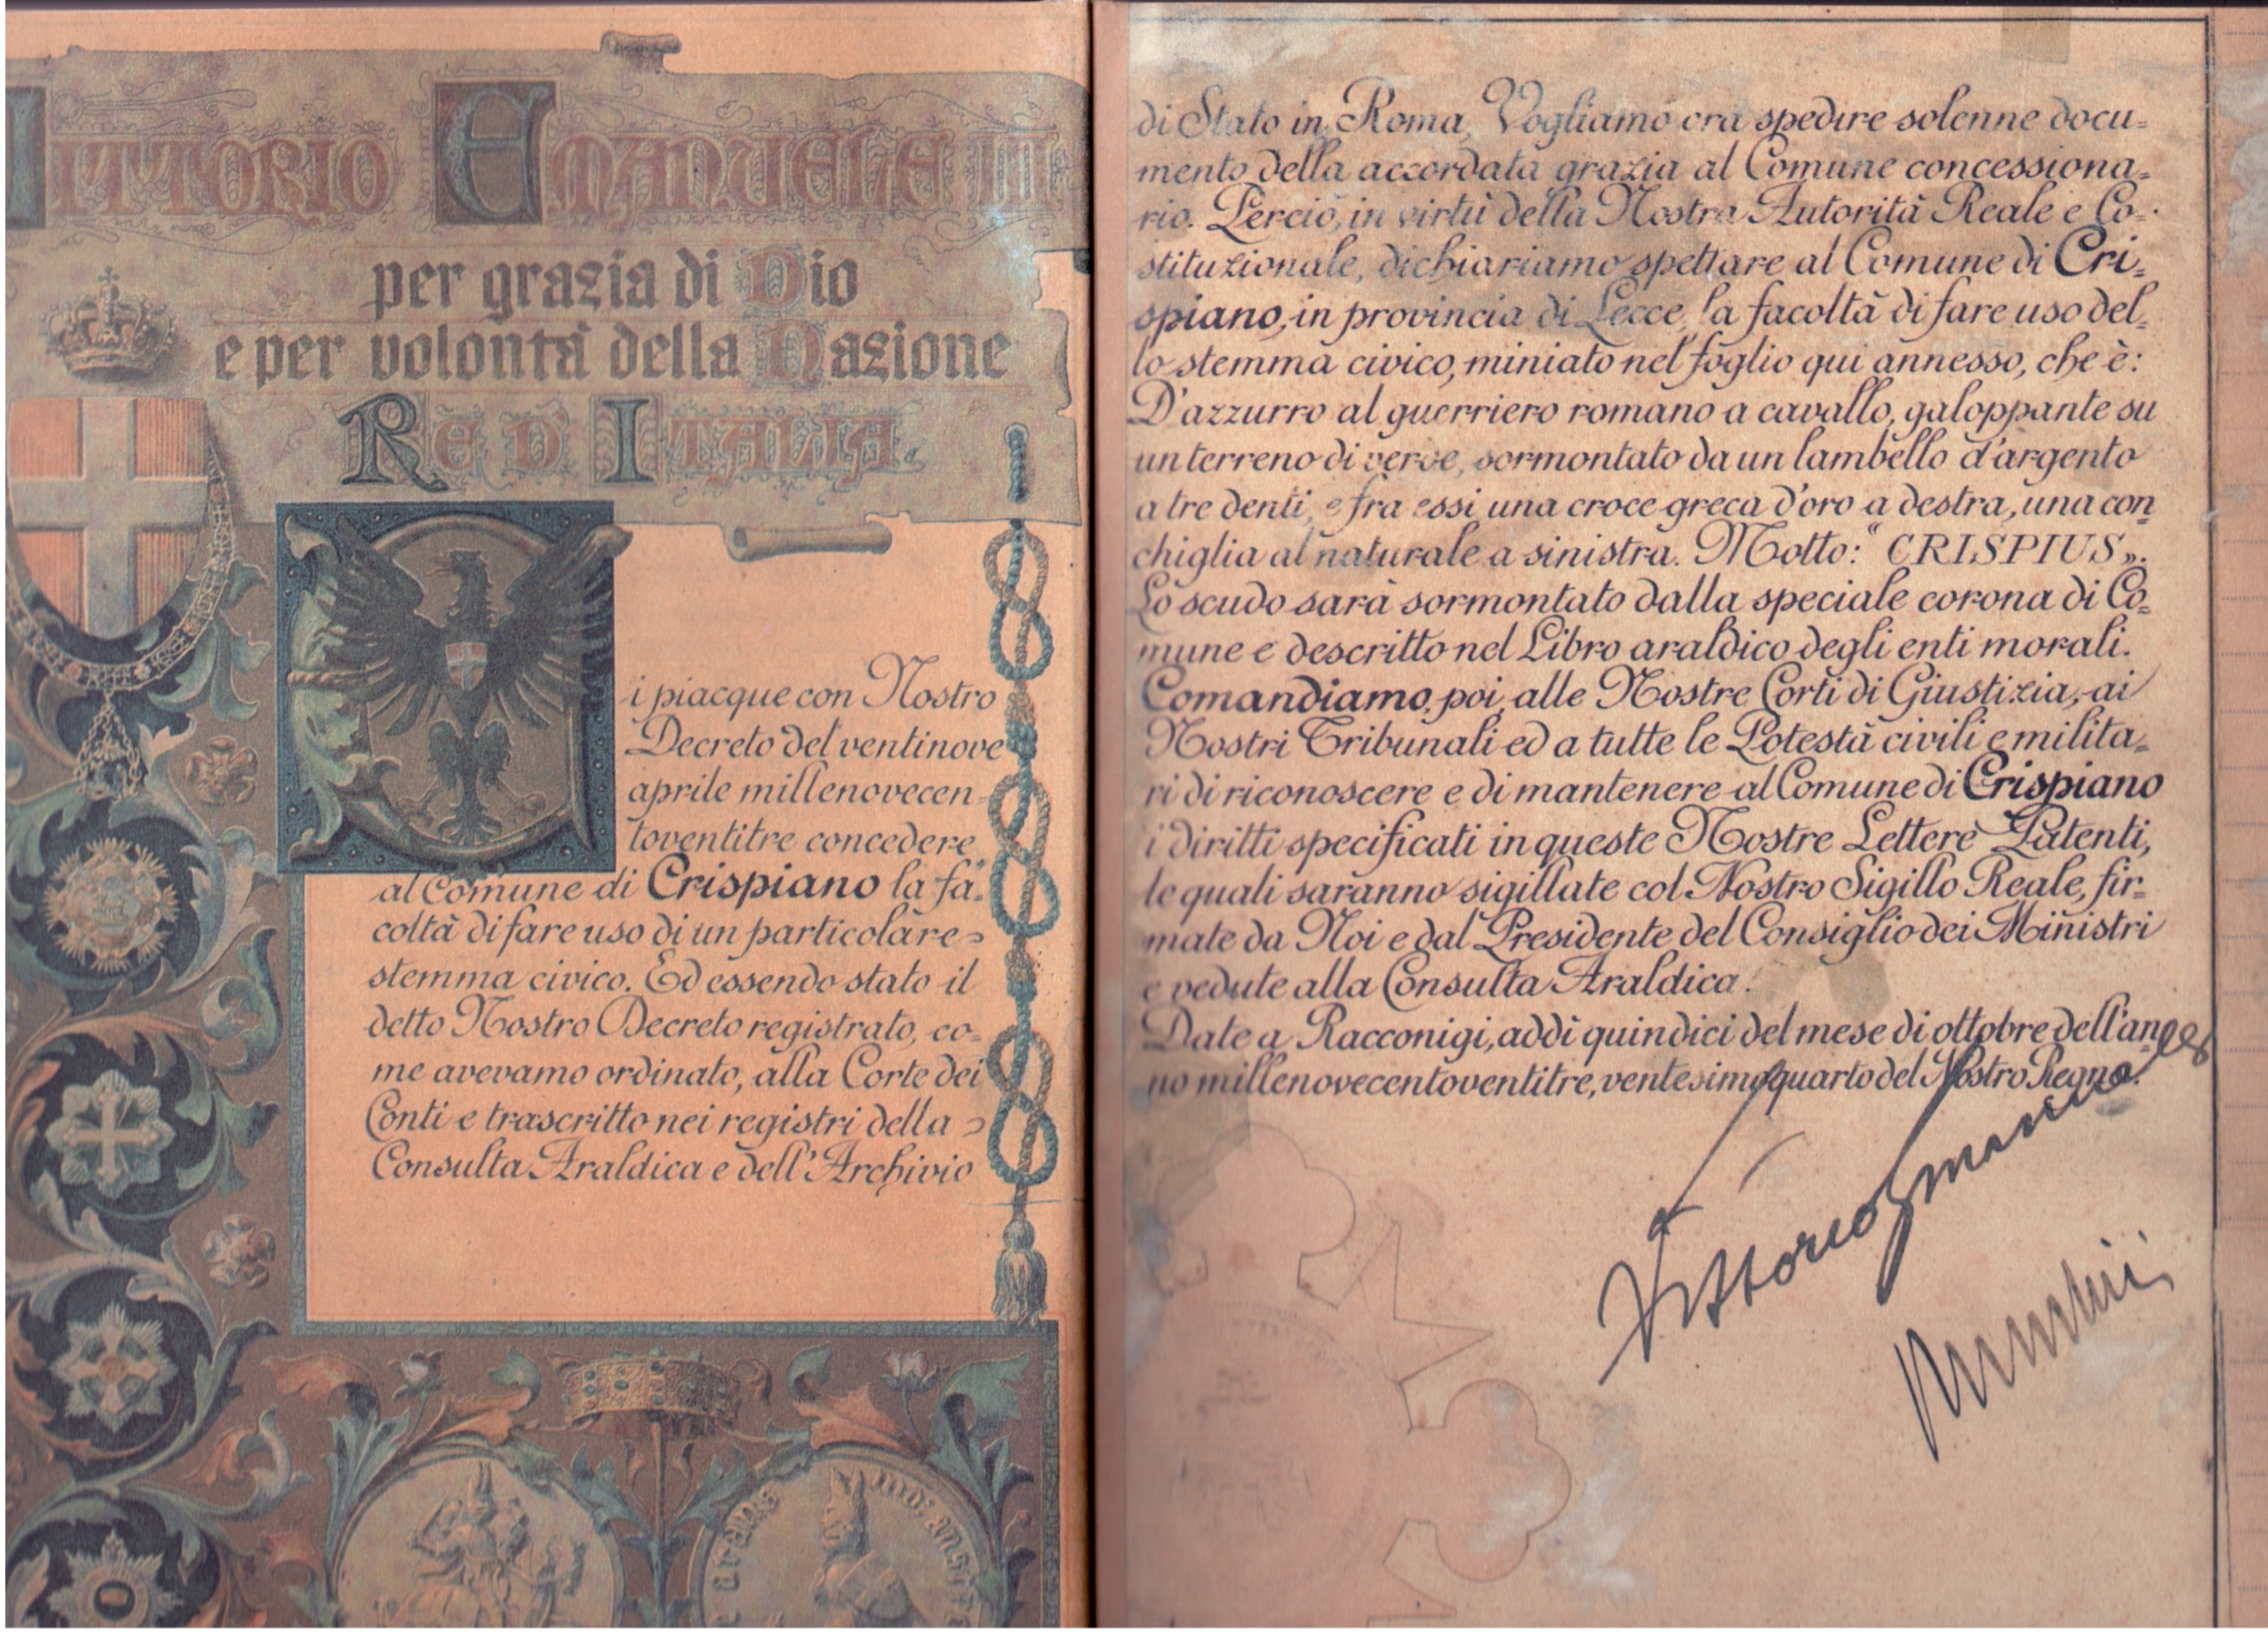 VITTORIO EMANUELE III
per grazia di Dio
e per volontà della Nazione
RE D'ITALIA
i piacque con Nostro
Decreto del ventinove
aprile millenovecen-
toventitre concedere
al Comune di Crispiano la fa-
coltà di fare uso di un particolare
stemma civico. Ed essendo stato il
detto Nostro Decreto registrato, co-
me avevamo ordinato, alla Corte dei
Conti e trascritto nei registri della
Consulta Araldica e dell'Archivio
di Stato in Roma, Vogliamo ora spedire solenne docu=
mento della accordata grazia al Comune concessiona=
rio. Perciò, in virtù della Nostra Autorità Reale e Co=
stituzionale, dichiariamo spettare al Comune di Cri=
spiano, in provincia di Lecce, la facoltà di fare uso del=
lo stemma civico, miniato nel foglio qui annesso, che è:
D'azzurro al guerriero romano a cavallo, galoppante su
un terreno di verde, sormontato da un lambello d'argento
a tre denti, e fra essi una croce greca d'oro a destra, una con=
chiglia al naturale a sinistra. Motto: "CRISPIUS".
Lo scudo sarà sormontato dalla speciale corona di Co=
mune e descritto nel Libro araldico degli enti morali.
Comandiamo poi alle Nostre Corti di Giustizia, ai
Nostri Tribunali ed a tutte le Potestà civili e milita=
ri di riconoscere e di mantenere al Comune di Crispiano
i diritti specificati in queste Nostre Lettere Patenti,
le quali saranno sigillate col Nostro Sigillo Reale, fir=
mate da Noi e dal Presidente del Consiglio dei Ministri
e vedute alla Consulta Araldica.
Date a Racconigi, addì quindici del mese di ottobre dell'an=
no millenovecentoventitre, ventesimoquarto del Nostro Regno.
Vittorio Emanuele
Mussolini